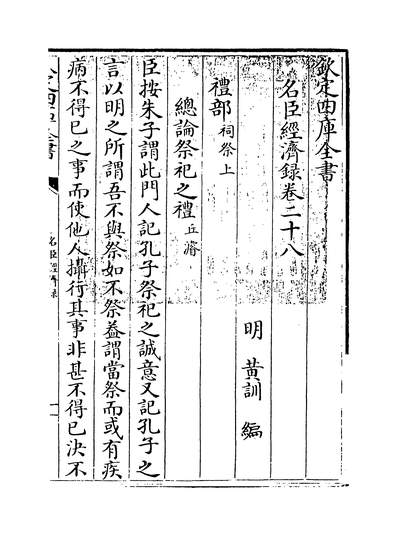 欽定四庫全書
名臣經濟錄卷二十八
明 黃訓 編
禮部 祠祭上
總論祭祀之禮 丘濬
臣按朱子謂此門人記孔子祭祀之誠意又記孔子之
言以明之所謂吾不與祭如不祭葢謂當祭而或有疾
病不得已之事而使他人攝行其事非甚不得已決不
名臣經濟錄